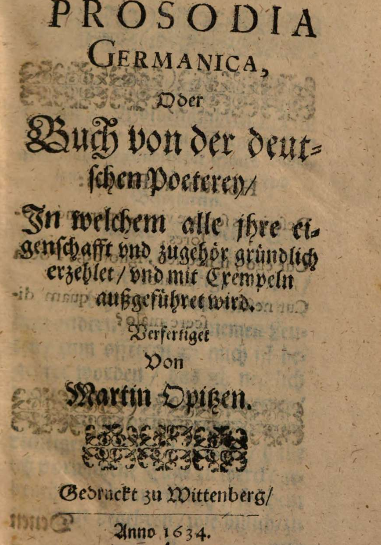 PROSODIA
GERMANICA,
Oder
Buch von der deut-
schen Poeterey/
In welchem alle jhre ei-
genschafft vnd zugehör gründlich
erzehlet/ vnd mit Exempeln
außgeführet wird.
Verfertiget
Von
Martin Opitzen.
Gedruckt zu Wittenberg/
Anno 1634.